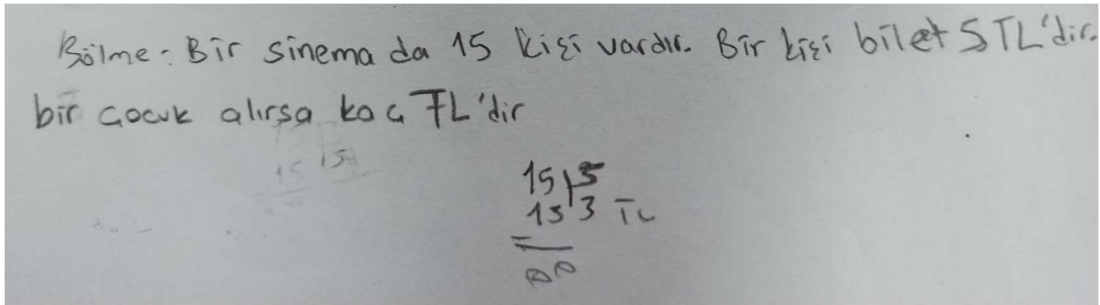 Bölme: Bir sinema da 15 kişi vardır. Bir kişi bilet 5 TL'dir.
bir çocuk alırsa kaç TL'dir
15 15
15 5
15 3 TL
00